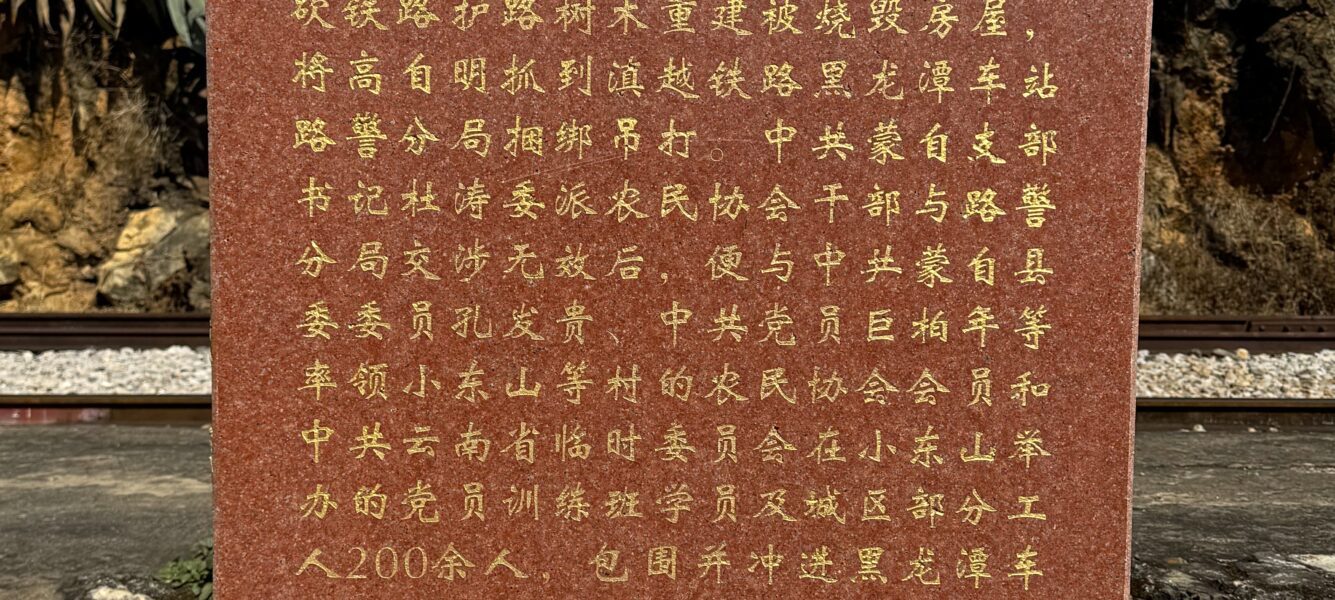 砍铁路护路树木重建被烧毁房屋，
将高自明抓到滇越铁路黑龙潭车站
路警分局捆绑吊打。中共蒙自支部
书记杜涛委派农民协会干部与路警
分局交涉无效后，便与中共蒙自县
委委员孔发贵、中共党员巨柏年等
率领小东山等村的农民协会会员和
中共云南省临时委员会在小东山举
办的党员训练班学员及城区部分工
人200余人，包围并冲进黑龙潭车